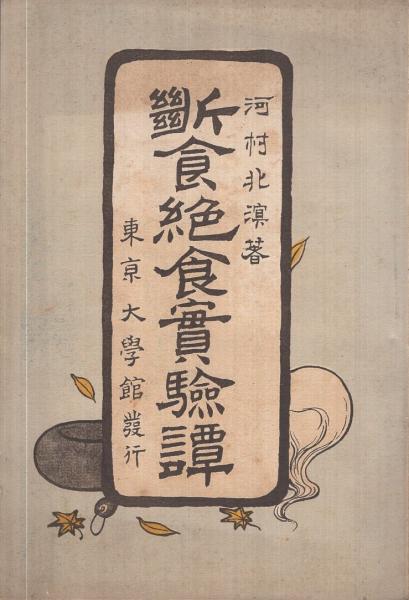 河村北溟著
斷食絶食實驗譚
東京大學館發行